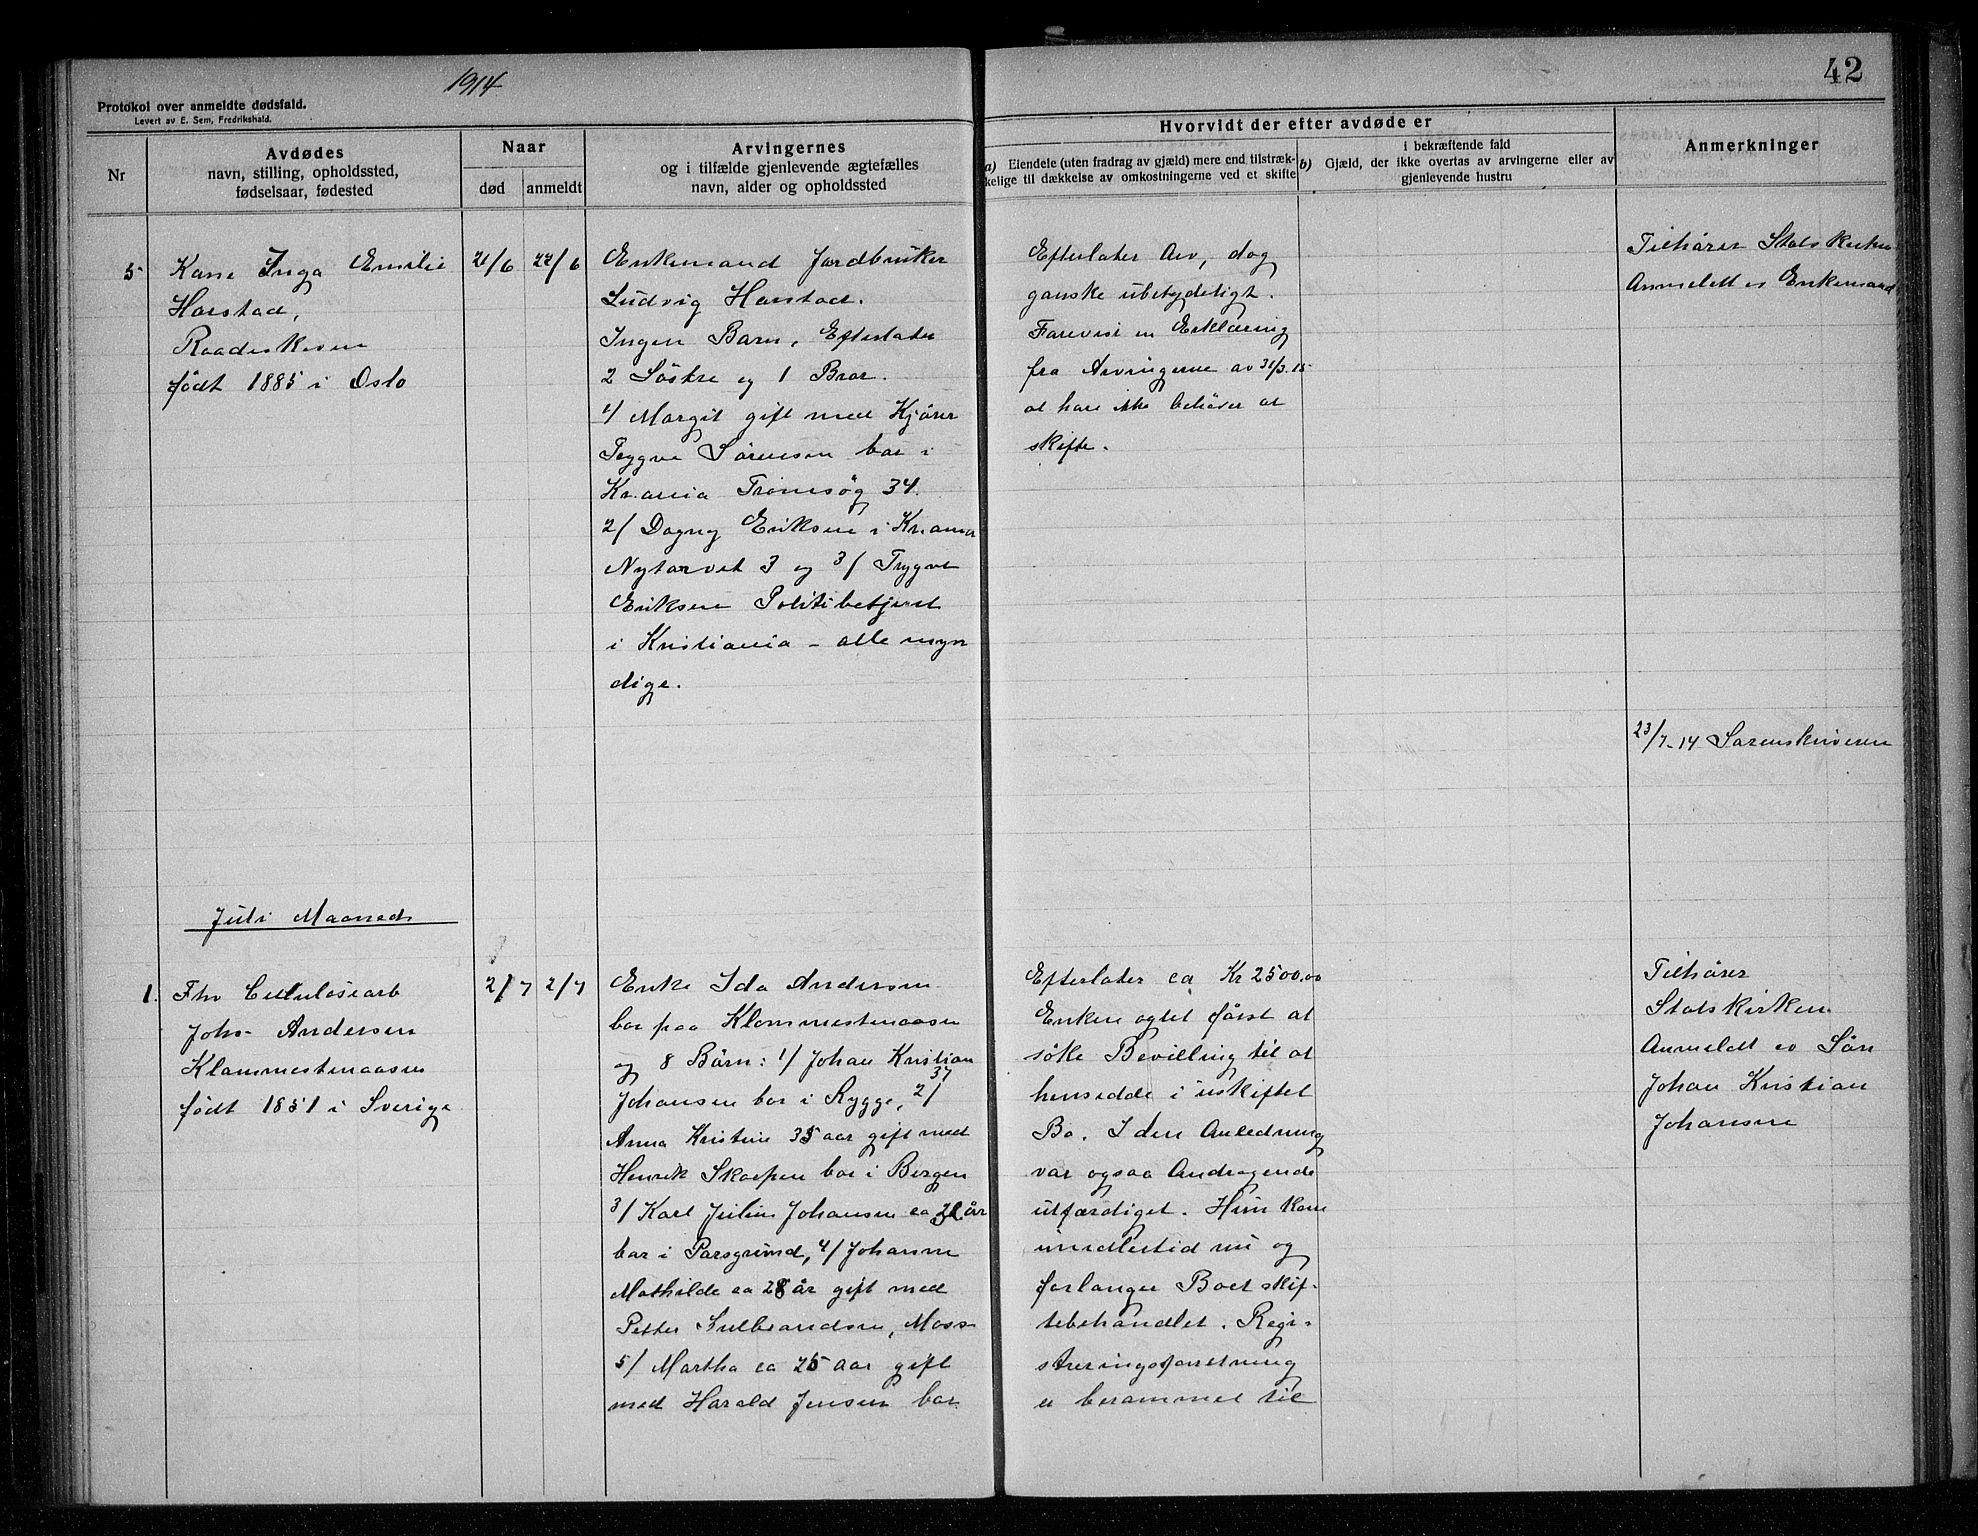 1914
42
Protokol over anmeldte dødsfald.
Levert av E. Sem, Fredrikshald.
Nr
Avdødes
navn, stilling, opholdssted,
fødselsaar, fødested
Naar
død
anmeldt
Arvingernes
og i tilfælde gjenlevende ægtefælles
navn, alder og opholdssted
Hvorvidt der efter avdøde er
a) Eiendele (uten fradrag av gjæld) mere end tilstræk-
kelige til dækkelse av omkostningerne ved et skifte
i bekræftende fald
b) Gjæld, der ikke overtas av arvingerne eller av
gjenlevende hustru
Anmerkninger
5
Kone Inga Emilie
Harstad,
født 1885 i Oslo
21/6
22/6
Enkemand Jordbruker
Ludvig Harstad.
Ingen Barn, Efterlater
2 Söstre og 1 Bror.
1/ Margit gift med Kjörer
Trygve Sörensen bor i
Kr.ania Tromsög 34.
2/ Dagny Eriksen i Kr.ania
Nytorvet 3 og 3/ Trygve
Eriksen Politibetjent
i Kristiania - alle myn
dige.
Efterlater Arv, dog
ganske ubetydeligt.
Forevist en Erklæring
fra Arvingerne av 31/3.15
at have ikke behöver at
skifte.
Tilhörer Statskirken
Anmeldt av Enkemand
23/7-14 Sorenskriveren
Juli Maaned
1.
Fhv Cellulosearb
Johs- Andersen
Klommestenaasen
født 1851 i Sverige
2/7
2/7
Enke Ida Andersen
bor paa Klommestenaasen
og 8 Börn: 1/ Johan Kristian
37
Johansen bor i Rygge, 2/
Anna Kristine 35 aar gift med
Henrik Skorpen bor i Bergen
3/ Karl Julius Johansen ca år
bor i Porsgrund, 4/ Johanne
Mathilde ca 28 år gift med
Petter Gulbrandsen, Moss
5/ Martha ca 25 aar gift
med Harald Jensen bor
Efterlater ca Kr 2500.00
Enken agtet först at
söke Bevilling til at
hensidde i uskiftet
Bo. I den Anledning
var ogsaa Andragende
utfærdiget. Hun kom
imidlertid nu og
forlanger Boet skif-
tebehandlet. Regi-
streringsforretning
er berammet til
Tilhörer
Statskirken
Anmeldt av Sön
Johan Kristian
Johansen